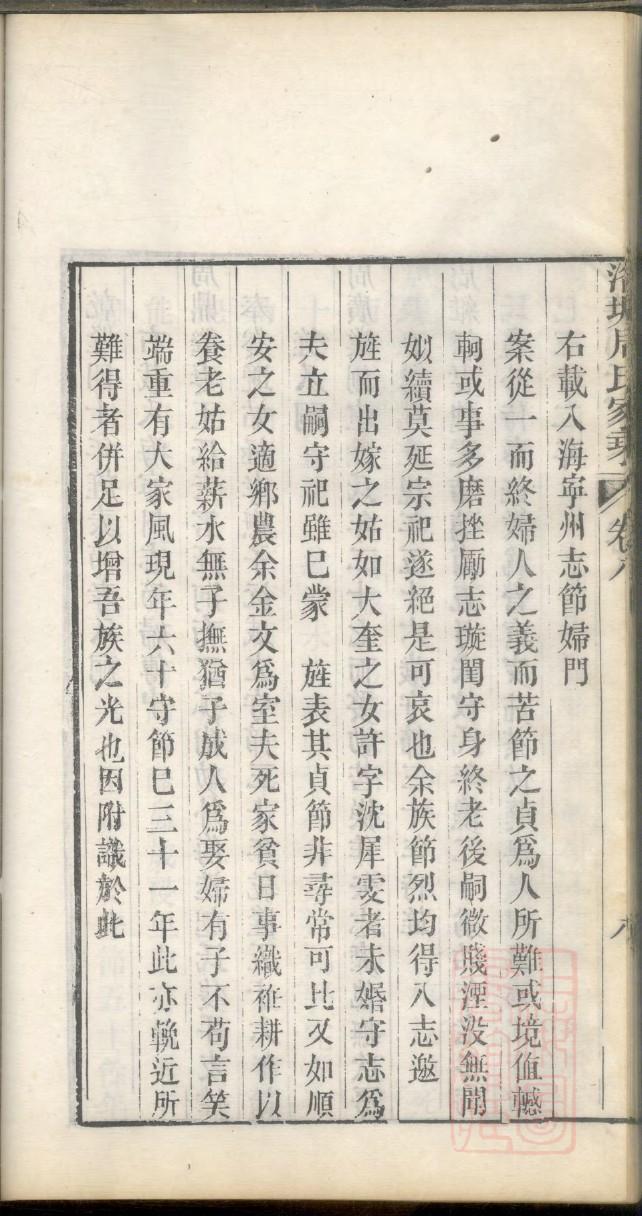 洛塘周氏家乘 卷八
八
右載入海寧州志節婦門
案從一而終婦人之義而苦節之貞爲人所難或境值轗
軻或事多磨挫勵志璇閨守身終老後嗣微賤湮没無聞
姒續莫延宗祀遂絕是可哀也余族節烈均得入志邀
旌而出嫁之姑如大奎之女許字沈犀雯者未婚守志爲
夫立嗣守祀雖巳蒙 旌表其貞節非尋常可比又如順
安之女適鄉農余金文爲室夫死家貧日事織𥿊耕作以
養老姑給薪水無子撫猶子成人爲娶婦有子不苟言笑
端重有大家風現年六十守節巳三十一年此亦輓近所
難得者併足以增吾族之光也因附識於此